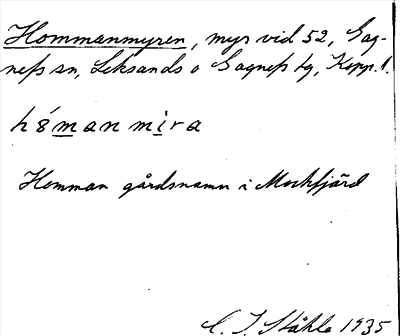 Hommanmyren, myr vid 52, Gag-
nefs sn, Leksands o Gagnefs tg, Kopp. l.
hómanmira
Homman gårdsnamn i Mockfjärd
C. I. Ståhle 1935